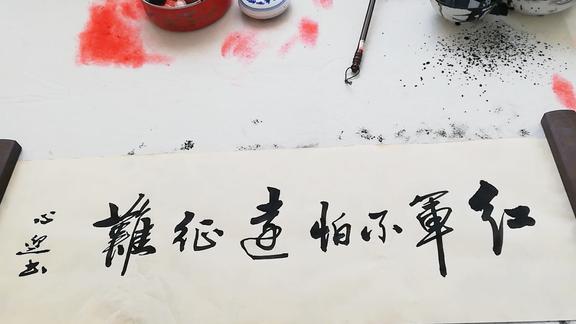 红軍不怕遠征難
心迎书